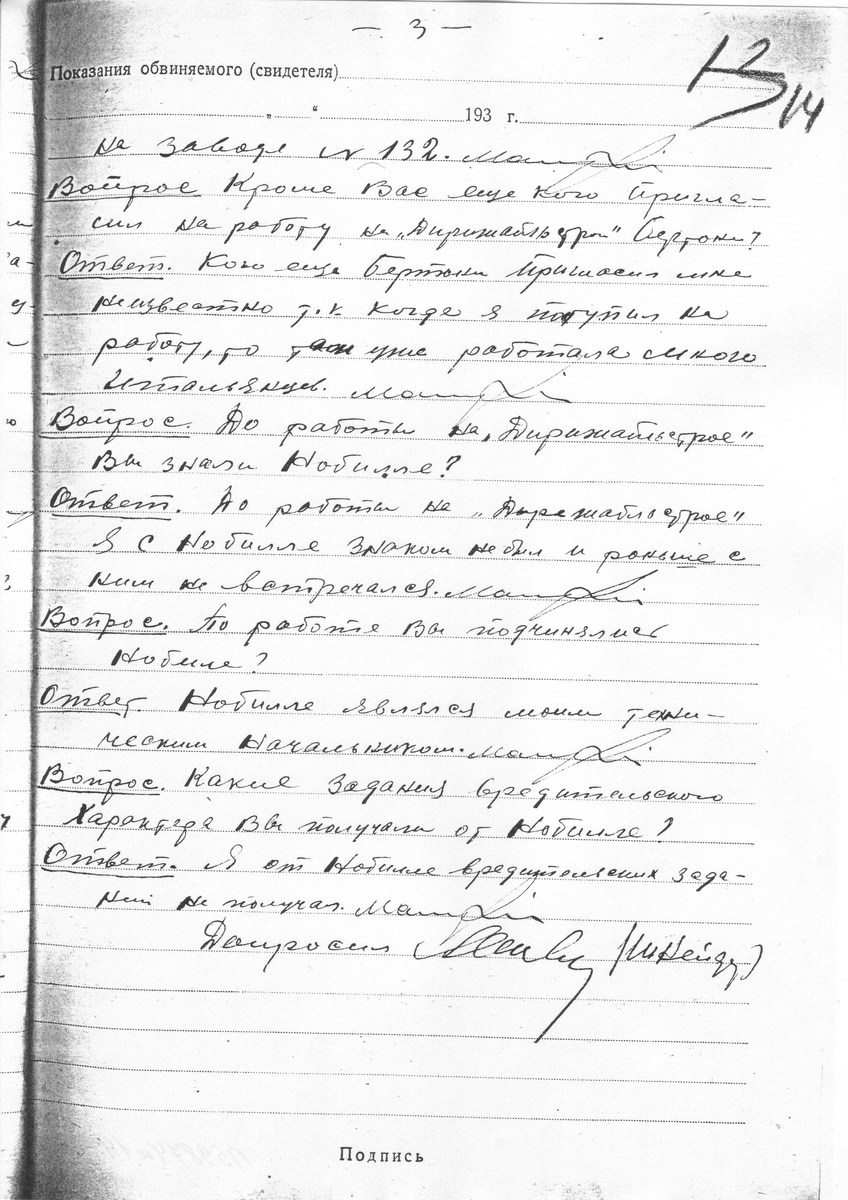 — 3 —
12
14
Показания обвиняемого (свидетеля)
„ “ 193 г.
на заводе N 132.
Вопрос Кроме Вас еще кого Пригла-
сил на работу на „Дирижабльстрой" Бертони?
Ответ. Кого еще Бертони Пригласил мне
неизвестно т.к. когда я поступил на
работу, то там уже работала много
Итальянцев.
Вопрос. До работы на „Дирижабльстрое"
Вы знали Нобилле?
Ответ. До работы на „Дирижабльстрое"
Я с Нобилле знаком небыл и раньше с
ним не встречался.
Вопрос. По работе Вы подчинялись
Нобиле?
Ответ Нобилле являлся моим техни-
ческим Начальником.
Вопрос. Какие задания вредительского
Характера Вы получали от Нобилле?
Ответ. Я от Нобилле вредительских зада-
ний не получал.
Допросил
Подпись